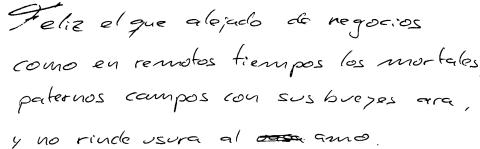 Feliz el que alejado de negocios
como en remotos tiempos los mortales
paternos campos con sus bueyes ara,
y no rinde usura al amo.